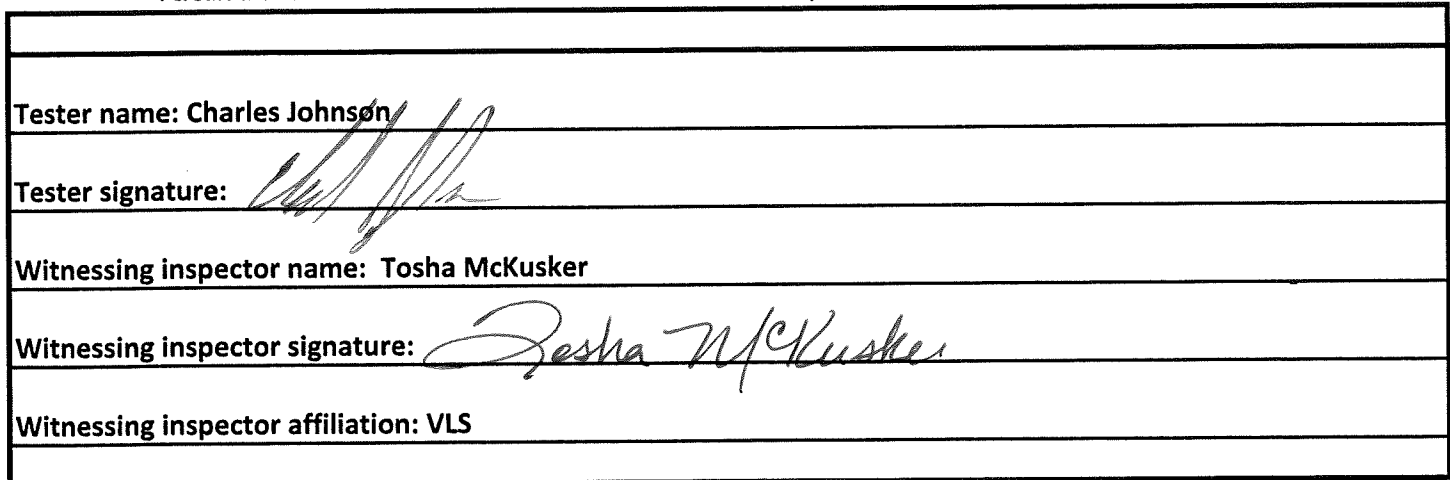 Tester name: Charles Johnson
Tester signature:
Witnessing inspector name: Tosha McKusker
Witnessing inspector signature: Tosha McKusker
Witnessing inspector affiliation: VLS